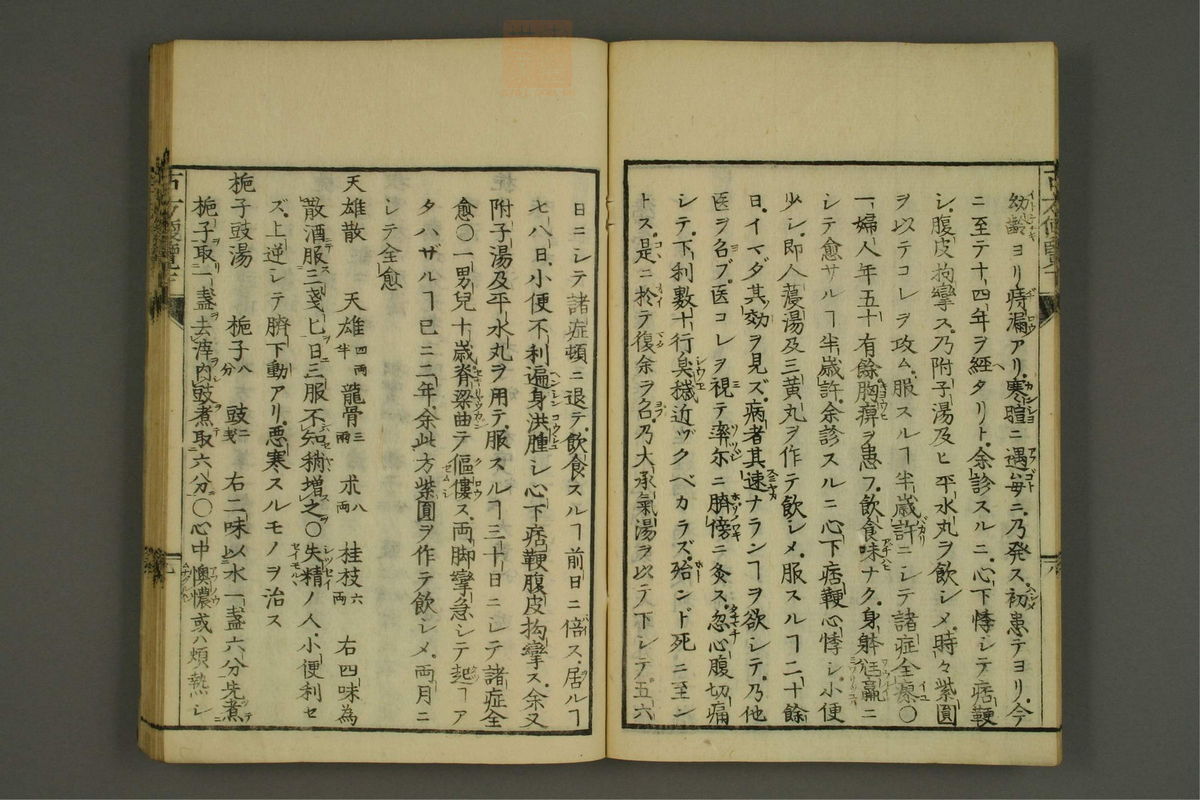 幼齢ヨリ痔漏アリ寒暄ニ遇毎ニ乃発ス初患テヨリ今
ニ至テ十四年ヲ經タリト余診スルニ心下悸シテ痞鞕
シ腹皮拘攣ス乃附子湯及ヒ平水丸ヲ飲シメ時々紫圓
ヲ以テコレヲ攻ム服スルヿ半歳許ニシテ諸症全瘳〇
一婦人年五十有餘胸痹ヲ患フ飲食味ナク身躰尫羸ニ
シテ愈サルヿ半歳許余診スルニ心下痞鞕心悸シ小便
少シ即人葠湯及三黄丸ヲ作テ飲シメ服スルヿ二十餘
日イマダ其効ヲ見ズ病者其速ナランヿヲ欲シテ乃他
医ヲ名ブ医コレヲ視テ率尓ニ臍傍ニ灸ス忽心腹切痛
シテ下利數十行臭穢近ヅクベカラズ殆ンド死ニ至ン
トス是ニ於テ復余ヲ名乃大承氣湯ヲ以テ下シテ五六
日ニシテ諸症頓ニ退テ飲食スルヿ前日ニ倍ス居ルヿ
七八日小便不利遍身洪腫シ心下痞鞕腹皮拘攣ス余又
附子湯及平水丸ヲ用テ服スルヿ三十日ニシテ諸症全
愈〇一男兒十歳脊梁曲テ傴僂ス両脚攣急シテ起ヿア
タハザルヿ已ニ二年余此方紫圓ヲ作テ飲シメ両月ニ
シテ全愈
天雄散 天雄四両半 龍骨三両 朮八両 桂枝六両 右四味為
散酒服三戔匕日三服不知稍増之〇失精ノ人小便利セ
ズ上逆シテ臍下動アリ悪寒スルモノヲ治ス
梔子豉湯 梔子八分 豉二戔 右二味以水一盞六分先煮
梔子取一盞去滓内豉煮取六分〇心中懊憹或ハ煩熱シ